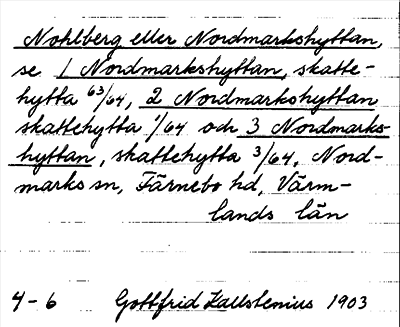 Nohlberg eller Nordmarkshyttan,
se 1 Nordmarkshyttan, skatte-
hytta 63/64, 2 Nordmarkshyttan
skattehytta 1/64 och 3 Nordmarks-
hyttan, skattehytta 3/64, Nord-
marks sn, Färnebo hd, Värm-
lands län
4-6 Gottfrid Kallstenius 1903